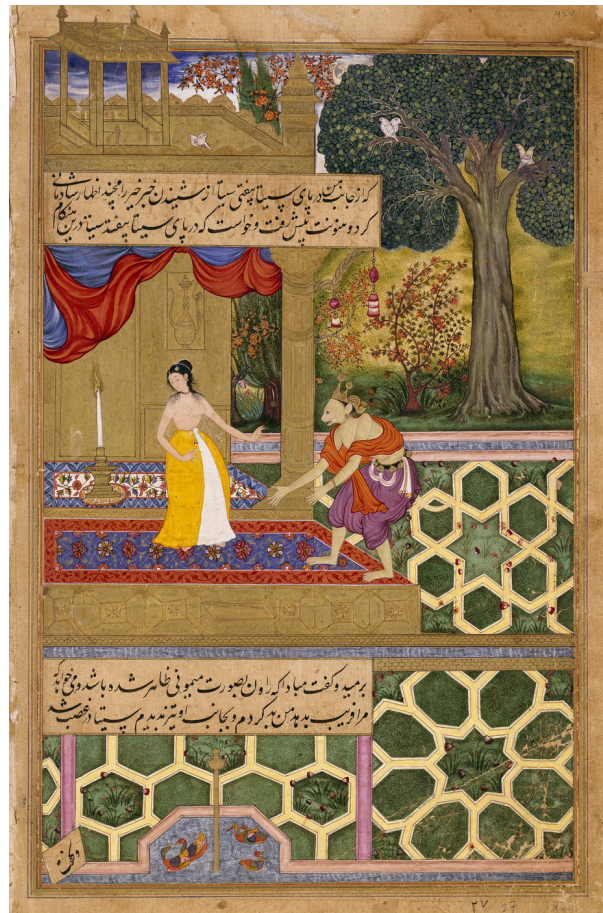 که از جانب من در پای سیتا بیفتی سیتا از شنیدن خبر خیر رامچند اظهار شادمانی
کرد و منونت پیش رفت و خواست که در پای سیتا بیفتد سیتا درین هنگام
برمید و گفت مبادا که راون بصورت میمونی ظاهر شده باشد و می خواهد که
مرا فریب بدهد من نیز کردم و بجانب او تیز ندیدم سیتا در غضب شد
۲۷ 27